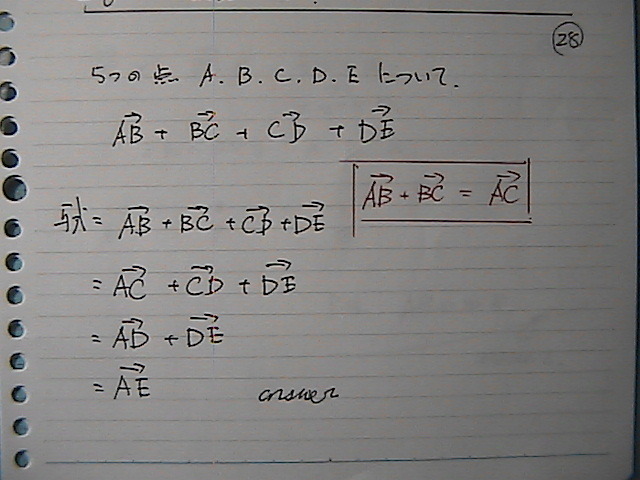 28
5つの点 A. B. C. D. E について.
$\overrightarrow{AB} + \overrightarrow{BC} + \overrightarrow{CD} + \overrightarrow{DE}$
$\overrightarrow{AB} + \overrightarrow{BC} = \overrightarrow{AC}$
与式 = $\overrightarrow{AB} + \overrightarrow{BC} + \overrightarrow{CD} + \overrightarrow{DE}$
= $\overrightarrow{AC} + \overrightarrow{CD} + \overrightarrow{DE}$
= $\overrightarrow{AD} + \overrightarrow{DE}$
= $\overrightarrow{AE}$ answer